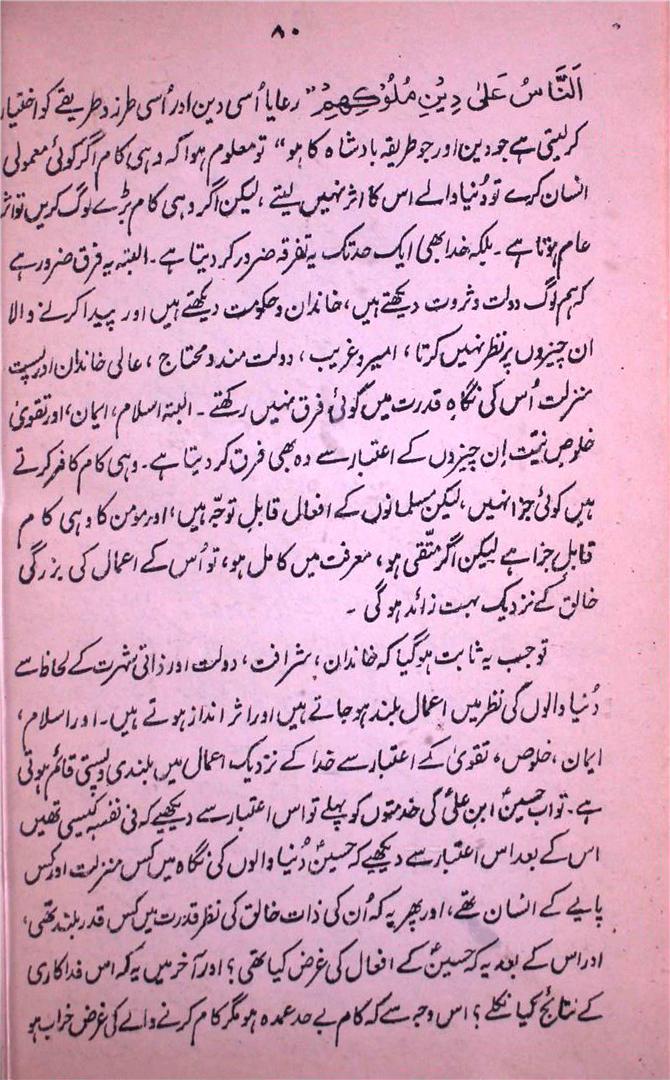 ۸۰
اَلنَّاسُ عَلیٰ دِیْنِ مُلُوْکِھِمْ" رعایا اُسی دین اور اُسی طرز و طریقے کو اختیار
کر لیتی ہے جو دین اور جو طریقہ بادشاہ کا ہو" تو معلوم ہوا کہ وہی کام اگر کوئی معمولی
انسان کرے تو دُنیا والے اس کا اثر نہیں لیتے، لیکن اگر وہی کام بڑے لوگ کریں تو اثر
عام ہوتا ہے۔ بلکہ خدا بھی ایک حد تک یہ تفرقہ ضرور کر دیتا ہے۔ البتہ یہ فرق ضرور ہے
کہ ہم لوگ دولت و ثروت دیکھتے ہیں، خاندان و حکومت دیکھتے ہیں اور پیدا کرنے والا
ان چیزوں پر نظر نہیں کرتا، امیر و غریب، دولت مند و محتاج، عالی خاندان اور پست
منزلت اُس کی نگاہِ قدرت میں کوئی فرق نہیں رکھتے۔ البتہ اسلام، ایمان، اور تقویٰ
خلوصِ نیّت اِن چیزوں کے اعتبار سے وہ بھی فرق کر دیتا ہے۔ وہی کام کافر کرتے
ہیں کوئی جزا نہیں، لیکن مسلمانوں کے افعال قابلِ توجّہ ہیں، اور مومن کا وہی کام
قابلِ جزا ہے لیکن اگر متّقی ہو، معرفت میں کامل ہو، تو اُس کے اعمال کی بزرگی
خالق کے نزدیک بہت زائد ہو گی ۔
تو جب یہ ثابت ہو گیا کہ خاندان، شرافت، دولت اور ذاتی شہرت کے لحاظ سے
دُنیا والوں کی نظر میں اعمال بلند ہو جاتے ہیں اور اثر انداز ہوتے ہیں۔ اور اسلام،
ایمان، خلوص، تقویٰ کے اعتبار سے خدا کے نزدیک اعمال میں بلندی و پستی قائم ہوتی
ہے۔ تو اب حسینؑ ابنِ علیؑ کی خدمتوں کو پہلے تو اس اعتبار سے دیکھیے کہ فی نفسہٖ کیسی تھیں
اس کے بعد اس اعتبار سے دیکھیے کہ حسینؑ دُنیا والوں کی نگاہ میں کس منزلت اور کس
پایے کے انسان تھے، اور پھر یہ کہ اُن کی ذات خالق کی نظرِ قدرت میں کس قدر بلند تھی،
اور اس کے بعد یہ کہ حسینؑ کے افعال کی غرض کیا تھی؟ اور آخر میں یہ کہ اس فداکاری
کے نتائج کیا نکلے؟ اس وجہ سے کہ کام بے حد عمدہ ہو مگر کام کرنے والے کی غرض خراب ہو